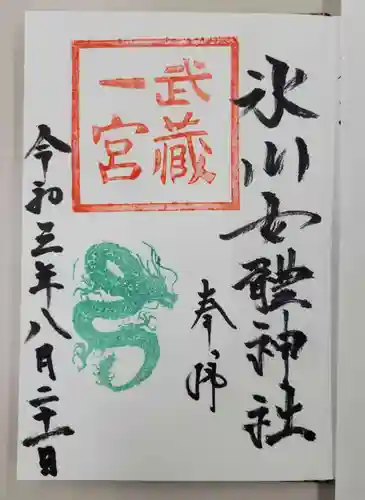 氷川女體神社
奉拝
武藏
一宮
令和三年八月二十一日